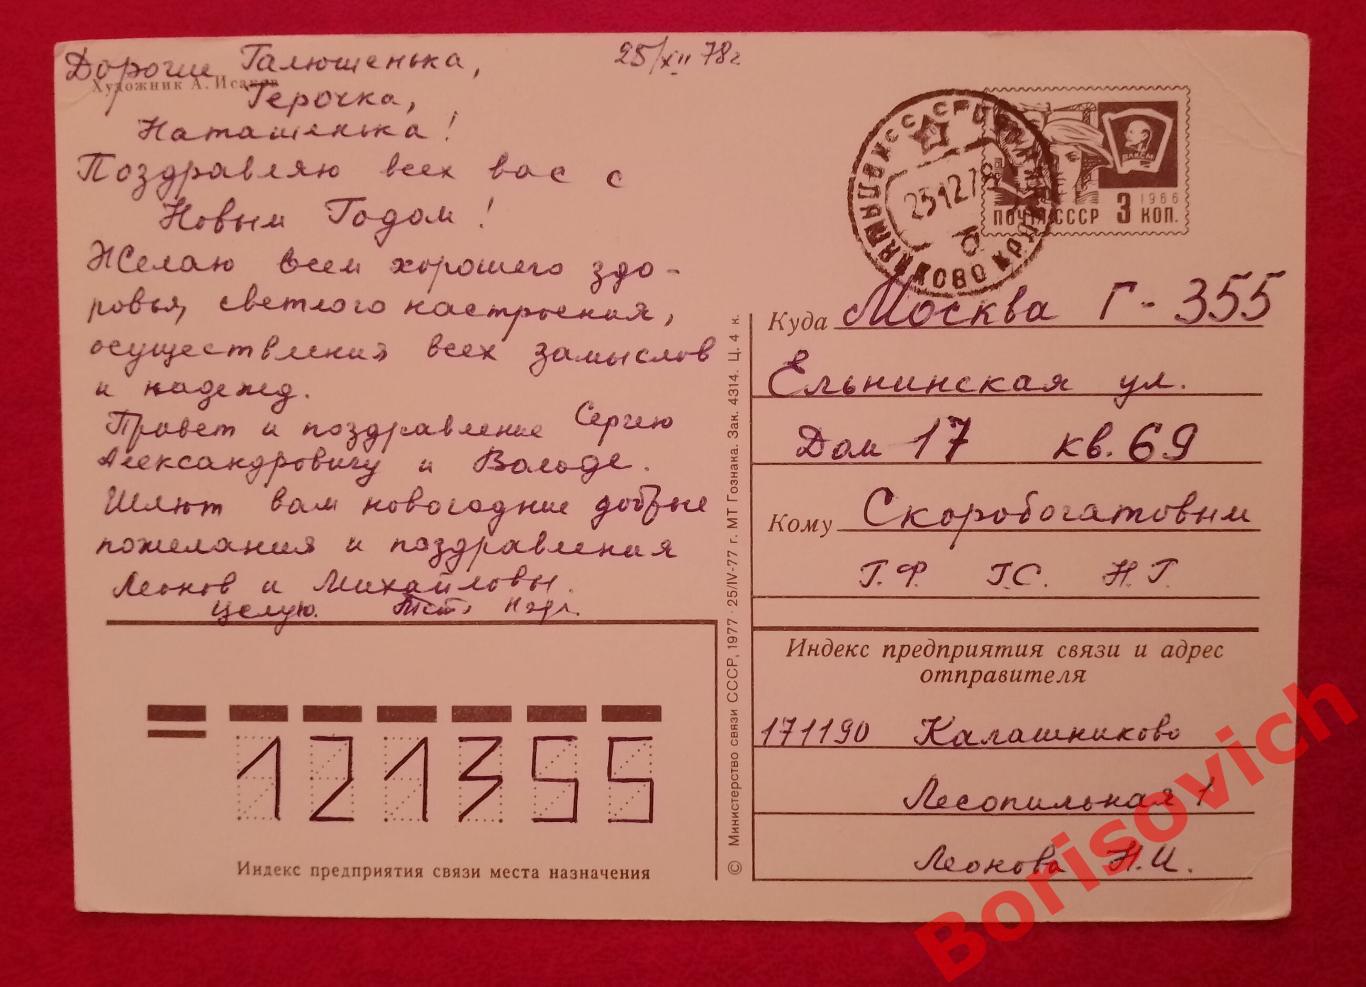 25/XII 78г
Дорогие Галюшенька,
Художник А. Исаков
Герочка,
Наташенька!
Поздравляю всех вас с
Новым Годом!
Желаю всем хорошего здо-
ровья, светлого настроения,
осуществления всех замыслов
и надежд.
Привет и поздравление Сергею
Александровичу и Володе.
Шлют вам новогодние добрые
пожелания и поздравления
Леонов и Михайловы.
Целую.
Индекс предприятия связи места назначения
121355
© Министерство связи СССР, 1977 · 25/IV-77 г. МТ Гознака. Зак. 4314. Ц. 4 к.
ВЛКСМ
1966
ПОЧТА СССР 3 КОП.
СССР
251278
Б
Куда Москва Г-355
Ельнинская ул.
Дом 17 кв. 69
Кому Скоробогатовым
Г.Ф. Г.С. Н.Г.
Индекс предприятия связи и адрес
отправителя
171190 Калашниково
Лесопильная 1
Леонова Н.И.
Borisovich